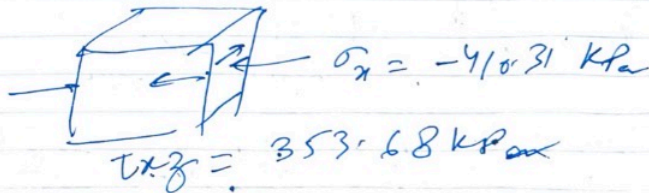 σx = -410.31 KPa
τxz = 353.68 KPa